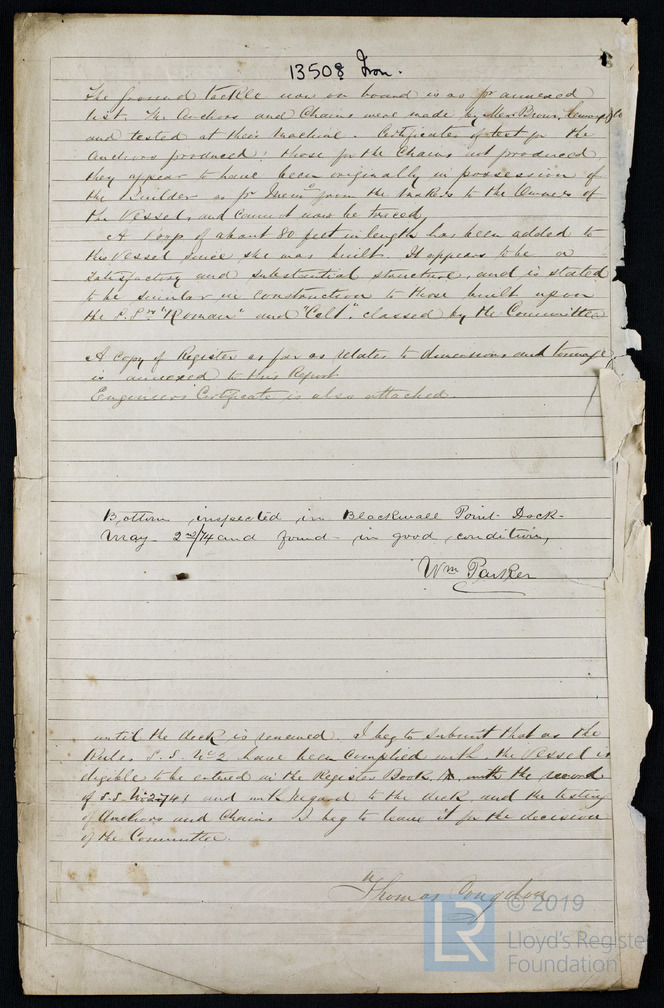 13508 Iron.
The ground tackle now on board is as pr annexed
list. The Anchors and Chains were made by Messrs Brown, Lenox & Co
and tested at their Machine. Certificates of test for the
Anchors produced; those for the Chains not produced,
they appear to have been originally in possession of
the Builder as pr from the Makers to the Owners of
the Vessel, and cannot now be traced,
A Poop of about 80 feet in length has been added to
this Vessel since she was built. It appears to be a
satisfactory and substantial structure, and is stated
to be similar in construction to those built upon
the S.Srs "Roman" and "Celt", classed by the Committee
A copy of Register as far as relates to dimensions and tonnage
is annexed to this Report
Engineers Certificate is also attached.
Bottom inspected in Blackwall Point Dock
May 2nd/74 and found in good condition,
Wm Parker
until the deck is renewed. I beg to submit that as the
Rules S.S. No 2 have been complied with the Vessel is
eligible to be entered in the Register Book, with the record
of S.S. No 2-74 and with regard to the deck, and the testing
of Anchors and Chains I beg to leave it for the decision
of the Committee.
Thomas Congdon
LR © 2019
Lloyd's Register
Foundation